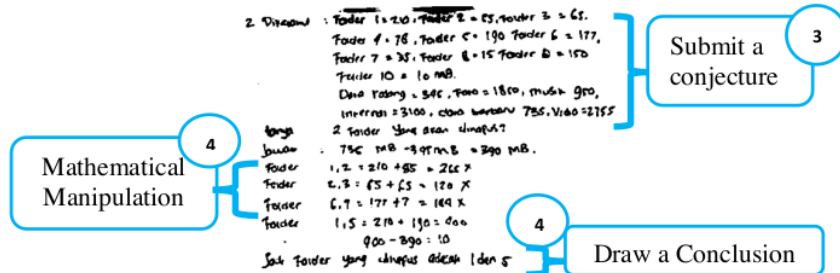 2 Diketahui : Folder 1 = 210, Folder 2 = 55, Folder 3 = 65.
Folder 4 = 78, Folder 5 = 190 Folder 6 = 177,
Folder 7 = 35, Folder 8 = 15 Folder = 150
Folder 10 = 10 MB.
Data = 345, Foto = 1800, musik 950,
Internal = 3100, data 735, Video = 2155
tanya 2 Folder yang akan dihapus?
Jawab : 735 MB - 345 MB = 390 MB.
Folder 1,2 = 210 + 55 = 265 X
Folder 2,3 = 55 + 65 = 120 X
Folder 6,7 = 177 + 7 = 184 X
Folder 1,5 = 210 + 190 = 400
400 - 390 = 10
Jadi Folder yang dihapus adalah 1 dan 5
3
Submit a
conjecture
4
Mathematical
Manipulation
4
Draw a Conclusion